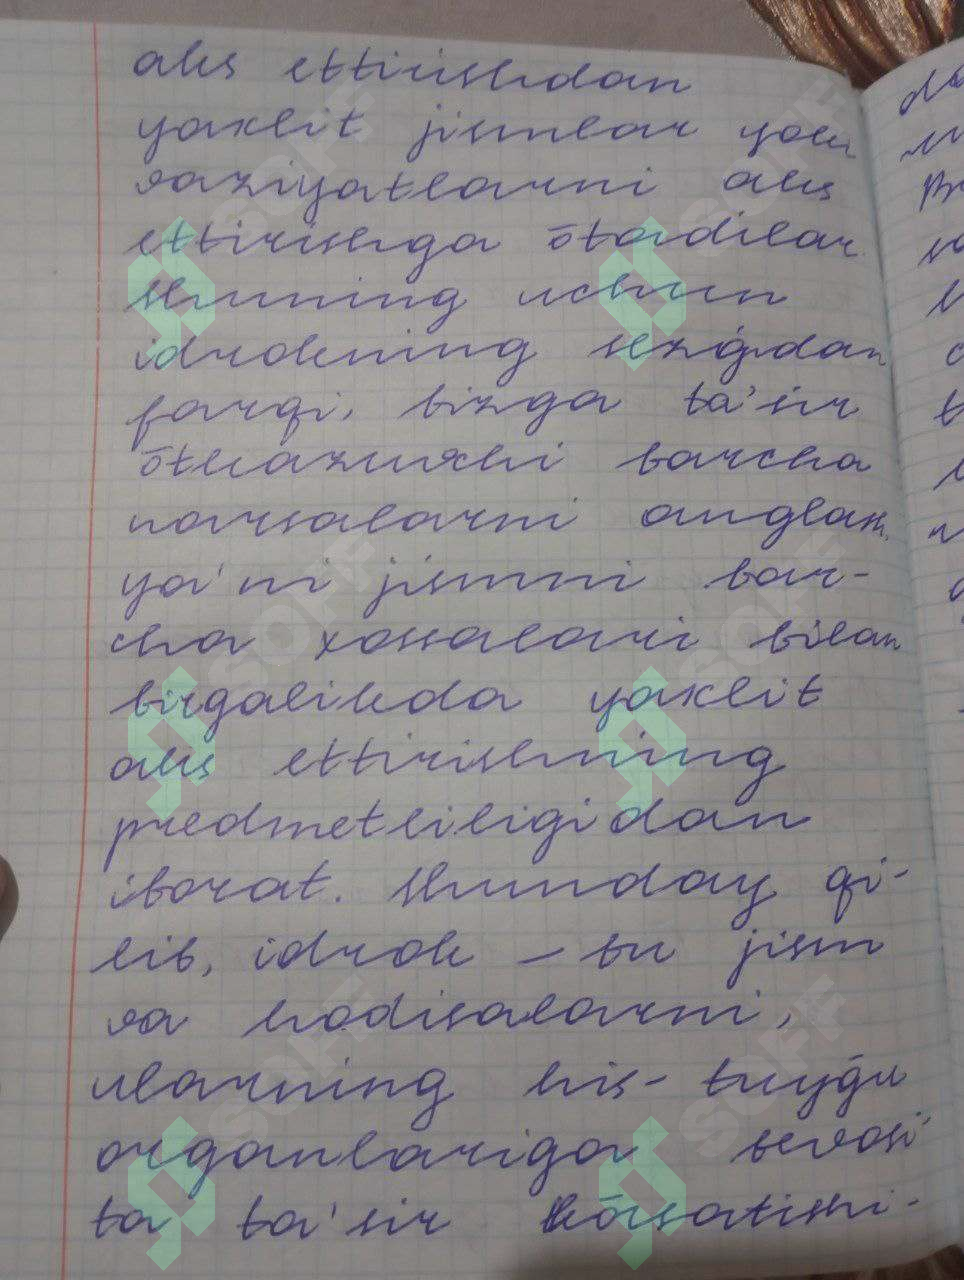 aks ettirishdan
yaxlit jismlar yoki
vaziyatlarni aks
ettirishga ōtadilar.
Shuning uchun
idrokning sezgidan
farqi, bizga ta'sir
ōtkazuvchi barcha
narsalarni anglash,
ya'ni jismni bar-
cha xossalari bilan
birgalikda yaxlit
aks ettirishning
predmetliligidan
iborat. Shunday qi-
lib, idrok – bu jism
va hodisalarni,
ularning his-tuyğu
organlariga bevosi
ta ta'sir kōrsatishi-
SOFF
SOFF
SOFF
SOFF
SOFF
SOFF